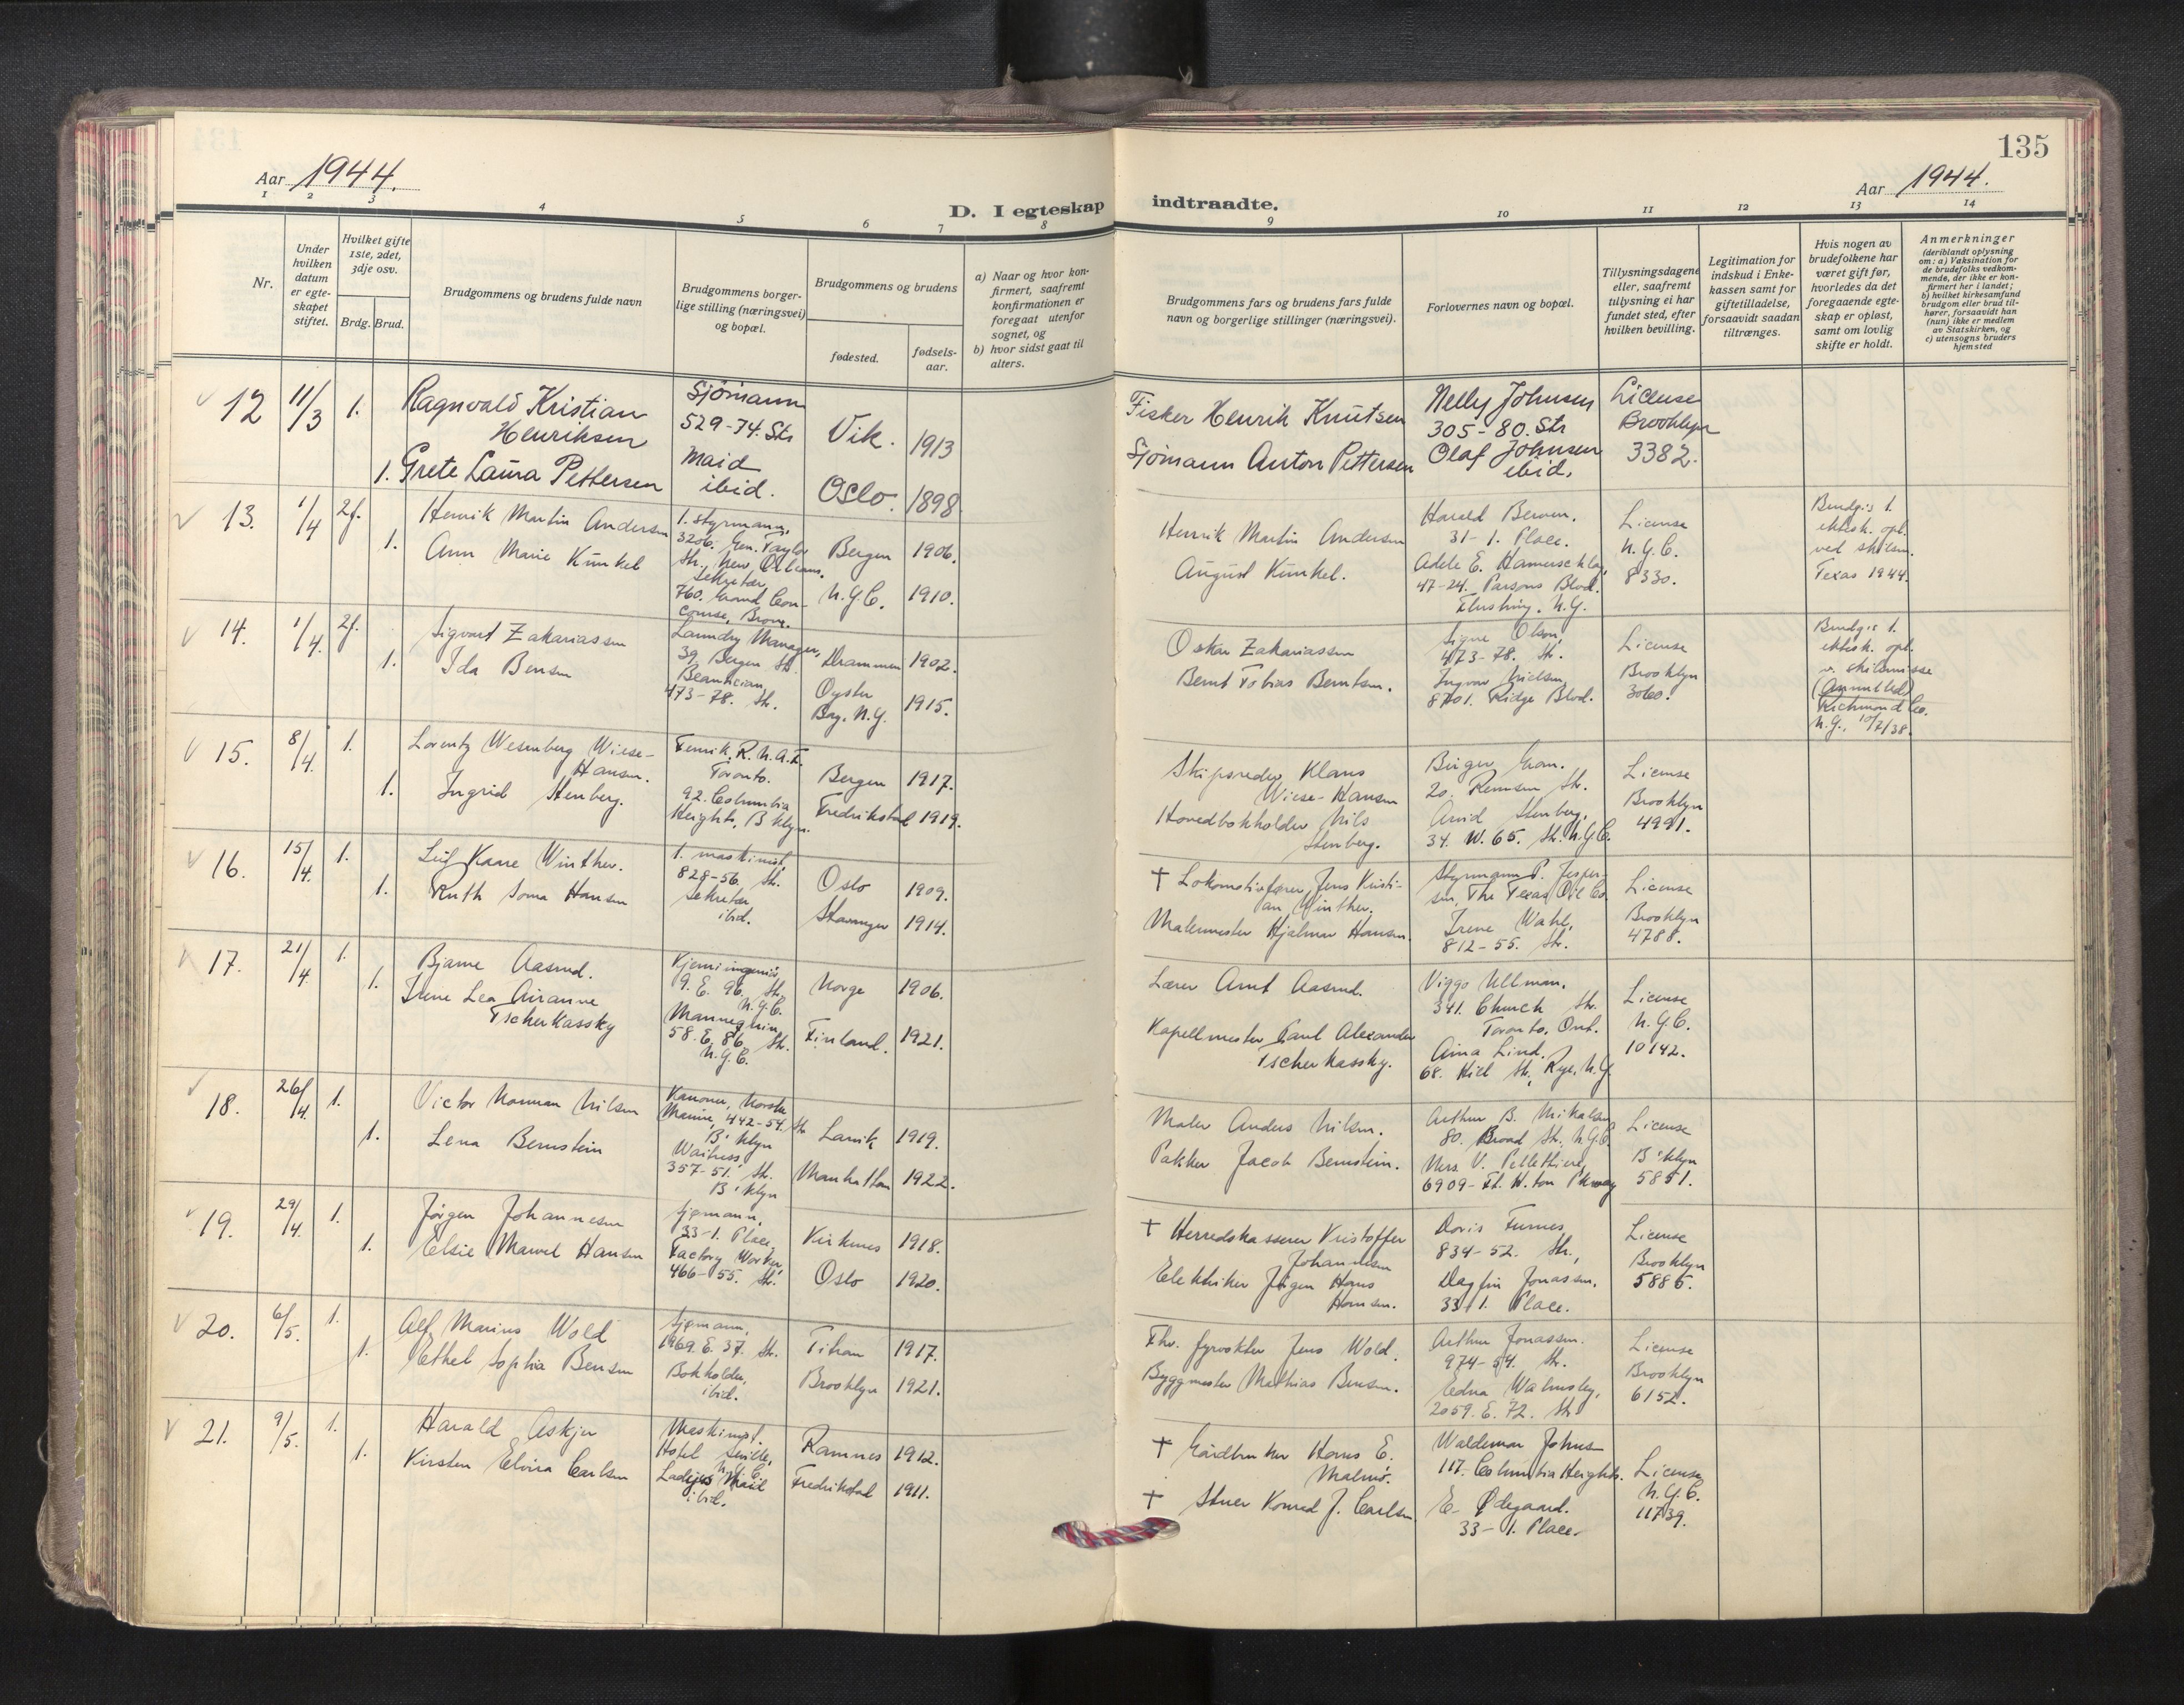 134
Aar 1944.
1 2 3 4 5 6 7 8
D. I egteskap
Nr.
Under hvilken datum er egteskapet stiftet.
Hvilket gifte 1ste, 2det, 3dje osv.
Brdg. Brud.
Brudgommens og brudens fulde navn
Brudgommens borgerlige stilling (næringsvei) og bopæl.
Brudgommens og brudens
fødested.
fødselsaar.
a) Naar og hvor konfirmert, saafremt konfirmationen er foregaat utenfor sognet, og
b) hvor sidst gaat til alters.
12 11/3 1. Ragnvald Kristian
Henriksen
Sjömann
529-74. Str
Vik. 1913
1. Grete Laura Pettersen
Maid
ibid.
Oslo. 1898
13. 1/4 2g. Henrik Martin Andersen
1. styrmann,
3206. Gen. Taylor
Str., New Orleans.
Bergen 1906.
1. Ann Marie Kunkel
Sekretær,
760. Grand Con-
course, Bronx.
N.Y.C. 1910.
14. 1/4 2g. Sigvart Zakariassen
Laundry Manager,
39 Bergen St.
Drammen 1902.
1. Ida Bensen
Beautician,
473-78. Str.
Oyster
Bay, N.Y. 1915.
15. 8/4 1. Lorentz Wesenberg Wiese-
Hansen.
Fenrik, R.N.A.F.
Toronto.
Bergen 1917.
1. Ingrid Stenberg.
92. Columbia
Heights, B'klyn.
Fredrikstad 1919.
16. 15/4 1. Leif Kaare Winther.
1. maskinist,
828-56. Str.
Oslo 1909.
1. Ruth Soma Hansen
Sekretær
ibid.
Stavanger 1914.
17. 21/4 1. Bjarne Aasrud.
Kjemiingeniör,
9. E. 96. Str.
N.Y.C.
Norge 1906.
1. Irene Lea Airanne
Tscherkassky
Mannequin,
58. E. 86. Str.
N.Y.C.
Finland. 1921.
18. 26/4 1. Victor Norman Nilsen
Kanoner, Norske
Marine, 442-54. Str
B'klyn
Larvik 1919.
1. Lena Bernstein
Waitress
357-51. Str.
B'klyn
Manhattan 1922.
19. 29/4 1. Jörgen Johannesen
Sjømann,
33-1. Place,
Kirkenes 1918.
1. Elsie Marvel Hansen
Factory Worker,
466-55. Str.
Oslo 1920.
20. 6/5. 1. Alf Marius Wold
Sjømann,
1969. E. 37. Str.
Titran 1917.
1. Ethel Sophia Bensen
Bokholder,
ibid.
Brooklyn 1921.
21. 9/5. 1. Harald Askjer
Maskinist.
Hotel
N.Y.C.
Ramnes 1912.
1. Kirsten Elvira Carlsen
Ladies Maid
ibid.
Fredrikstad 1911.
135
Aar 1944.
9 10 11 12 13 14
indtraadte.
Brudgommens fars og brudens fars fulde navn og borgerlige stillinger (næringsvei).
Forlovernes navn og bopæl.
Tillysningsdagene eller, saafremt tillysning ei har fundet sted, efter hvilken bevilling.
Legitimation for indskud i Enkekassen samt for giftetilladelse, forsaavidt saadan tiltrænges.
Hvis nogen av brudefolkene har været gift før, hvorledes da det foregaaende egteskap er opløst, samt om lovlig skifte er holdt.
Anmerkninger
(deriblandt oplysning om: a) Vaksination for de brudefolks vedkommende, der ikke er konfirmert her i landet;
b) hvilket kirkesamfund brudgom eller brud tilhører, forsaavidt han (hun) ikke er medlem av Statskirken, og
c) utensogns bruders hjemsted
Fisker Henrik Knutsen
Sjömann Anton Pettersen
Nelly Johnsen
305-80. Str
Olaf Johnsen
ibid.
License
Brooklyn
3382.
Henrik Martin Andersen
August Kunkel.
Harald Berven.
31-1. Place.
Adele E. Hamerschlag,
47-24. Parsons Blvd.
Flushing. N.Y.
License
N.Y.C.
8330.
Brudg.s 1.
ektesk. opl.
ved skilsm.
Texas 1944.
Oskar Zakariassen
Bernt Tobias Berntsen.
Signe Olson,
473-78. Str.
Ingvar Nielsen,
8701. Ridge Blvd.
License
Brooklyn
3060.
Brudg.s 1.
ektesk. opl.
v. skilsmisse
(Annulled)
Richmond Co.
N.Y., 10/2/38.
Skipsreder Klaus
Wiese-Hansen
Hovedbokholder Nils
Stenberg.
Birger Gran.
20. Remsen Str.
Arvid Stenberg,
34. W. 65. Str. N.Y.C.
License
Brooklyn
4991.
† Lokomotivfører Jens Kristi-
an Winther.
Malermester Hjalmar Hansen.
Styrmann P. Jesper-
sen, The Texas Oil Co.
Irene Wahl,
812-55. Str.
License
Brooklyn
4788.
Lærer Arnt Aasrud.
Kapellmester Paul Alexander
Tscherkassky.
Viggo Ullman.
341. Church Str.
Toronto, Ont.
Aina Lind.
68. Str., Rye, N.Y.
License
N.Y.C.
10142.
Maler Anders Nilsen.
Pakker Jacob Bernstein.
Arthur B. Mikalsen
80. Broad Str., N.Y.C
Mrs V. Pellethiere,
6909-Ft. H.ton Pkway
License
B'klyn
5851.
† Herredskasserer Kristoffer
Johannesen
Elektriker Jörgen Hans
Hansen.
Doris Furnes,
834-52. Str.,
Dagfin Jonassen.
33-1. Place.
License
Brooklyn
5886.
Fhv. fyrvokter Jens Wold.
Byggmester Mathias Bensen.
Arthur Jonassen.
974-54. Str.
Edna Walmsley,
2059. E. 72. Str
License
Brooklyn
6152.
† Gårdbruker Hans E.
Malmö.
† Stuer Konrad J. Carlsen
Waldemar Johns
117. Columbia Heights.
E. Ødegaard.
33-1. Place.
License
N.Y.C.
11739.